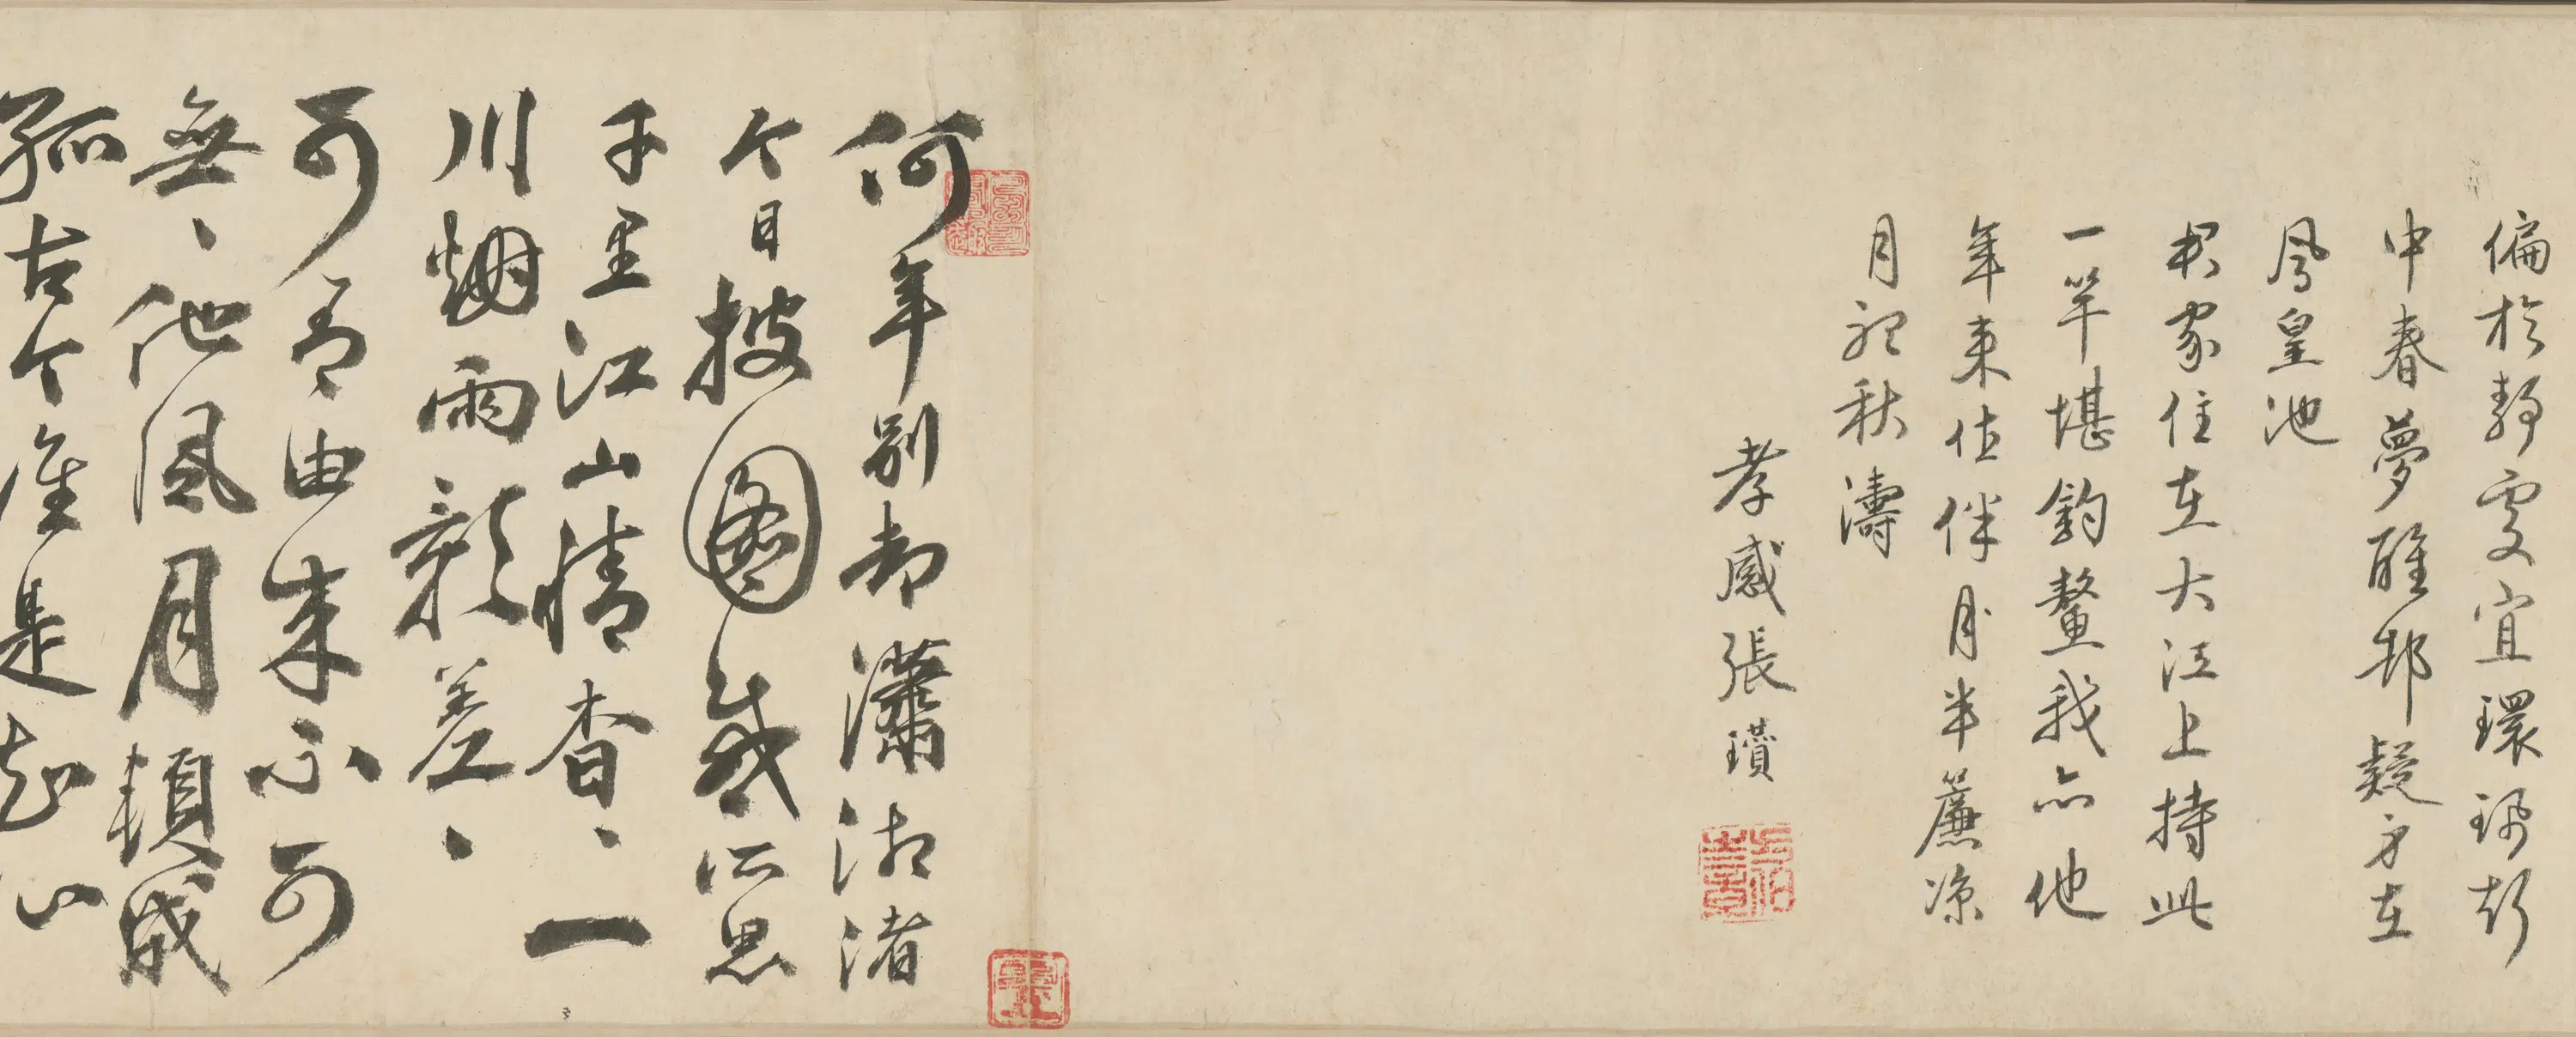 偏於靜處宜環珮打
中春夢醒却疑身在
鳳皇池
君家住在大江上持此
一竿堪釣鼇我亦他
年來借伴月半簾凉
月視秋濤
孝感張瓚
何年別却瀟湘渚
今日披圖感所思
千里江山情杳、一
川烟雨影差、
可否由來不可
無、他風月頓成
孤古今誰是知心